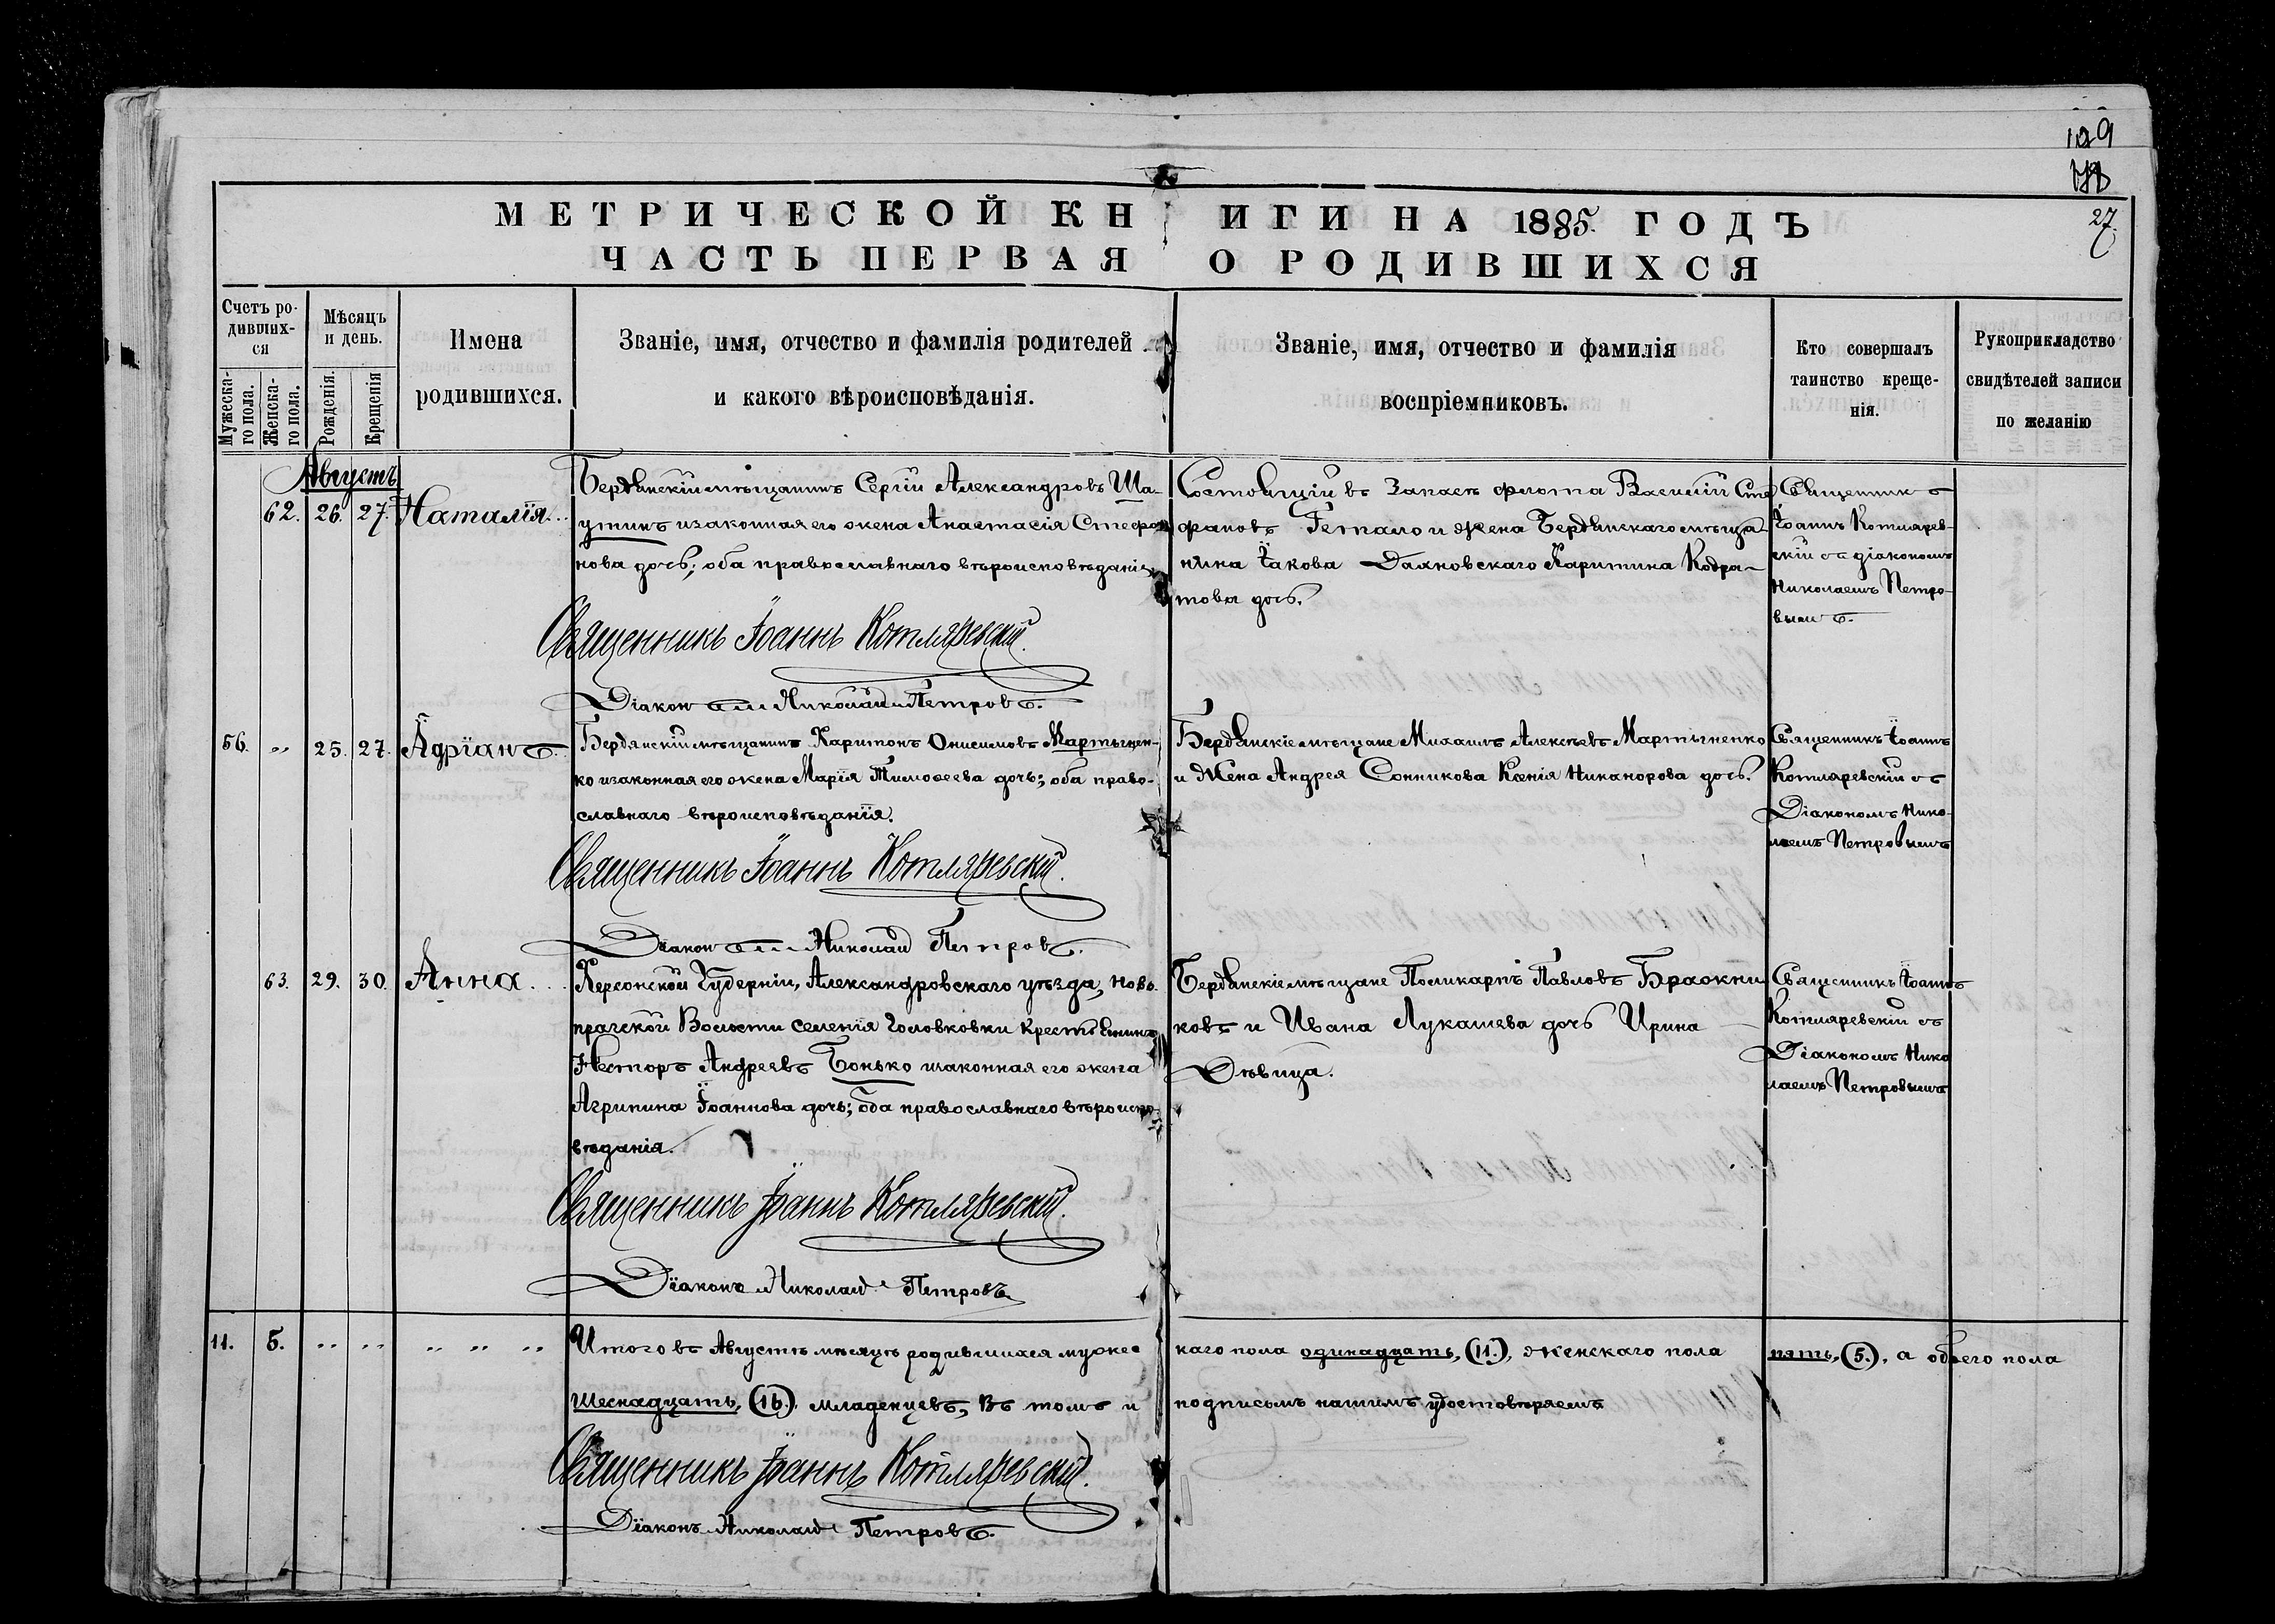 129
27.
МЕТРИЧЕСКОЙ КНИГИ НА 1885. ГОДЪ
ЧАСТЬ ПЕРВАЯ О РОДИВШИХСЯ
Счетъ ро-
дивших-
ся
Мужеска-
го пола.
Женска-
го пола.
Мѣсяцъ
и день.
Рожденія.
Крещенія
Имена
родившихся.
Званіе, имя, отчество и фамилія родителей
и какого вѣроисповѣданія.
Званіе, имя, отчество и фамилія
воспріемниковъ.
Кто совершалъ
таинство креще-
нія.
Рукоприкладство
свидѣтелей записи
по желанію
Августъ
62. 26. 27. Наталія.
Бердянскій мѣщанинъ Сергій Александровъ Ша-
утинъ и законная его жена Анастасія Стефа-
нова дочь; оба православнаго вѣроисповѣданія
Священникъ Іоаннъ Котляревскій.
Діаконъ Николай Петровъ.
Состоящій въ Запасѣ флота Василій Сте
фановъ Гетало и жена Бердянскаго мѣща-
нина Іакова Даяновскаго Харитина Кодра-
това дочь.
Священникъ
Іоаннъ Котлярев-
скій съ діакономъ
Николаемъ Петро-
вымъ.
56. " 25. 27. Адріанъ.
Бердянскій мѣщанинъ Харитонъ Онисимовъ Мартынен-
ко и законная его жена Марія Тимоѳеева дочь; оба право-
славнаго вѣроисповѣданія.
Священникъ Іоаннъ Котляревскій.
Діаконъ Николай Петровъ.
Бердянскіе мѣщане Михаилъ Алексѣевъ Мартыненко
и Жена Андрея Сонникова Ксенія Никанорова дочь.
Священникъ Іоаннъ
Котляревскій съ
Діакономъ Нико-
лаемъ Петровымъ
63. 29. 30. Анна.
Херсонской Губерніи, Александровскаго уѣзда, Ново-
прагской Волости селенія Головковки крестьянинъ
Несторъ Андреевъ Бонько и законная его жена
Агрипина Іоаннова дочь; оба православнаго вѣроиспо-
вѣданія.
Священникъ Іоаннъ Котляревскій.
Діаконъ Николай Петровъ.
Бердянскіе мѣщане Поликарпъ Павловъ Бражни
ковъ и Ивана Лукашева дочь Ирина
Дѣвица.
Священникъ Іоаннъ
Котляревскій съ
Діакономъ Нико
лаемъ Петровымъ
11. 5. " " " " " " " Итого въ Августѣ мѣсяцѣ родившихся мужес каго пола одинадцать, (11.), женскаго пола пять, (5.), а обоего пола
Шеснадцать, (16.), младенцевъ, Въ томъ и подписомъ нашимъ удостовѣряемъ
Священникъ Іоаннъ Котляревскій.
Діаконъ Николай Петровъ.